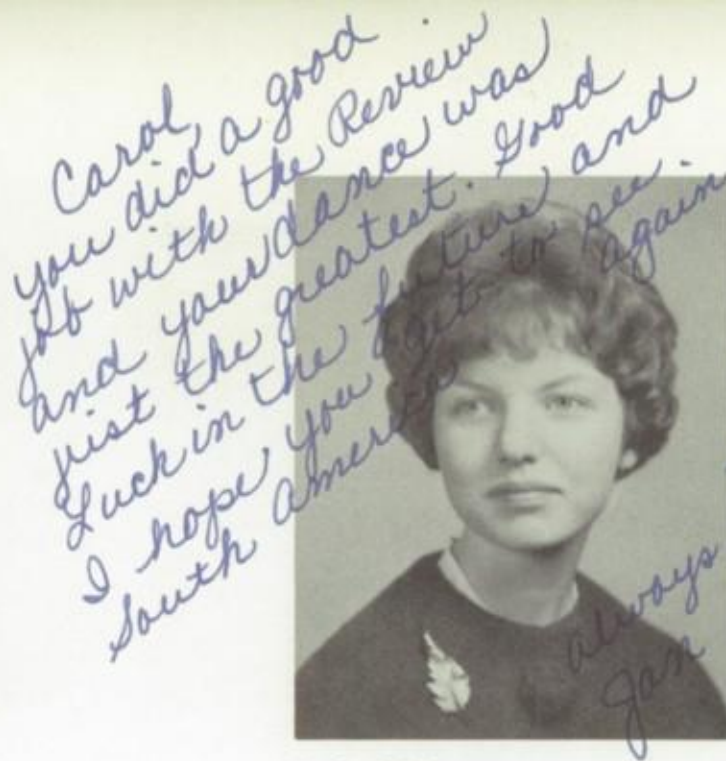 Carol,
you did a good
job with the Review
and your dance was
just the greatest. Good
Luck in the future and
I hope you get to see
South America again.
always
Jan